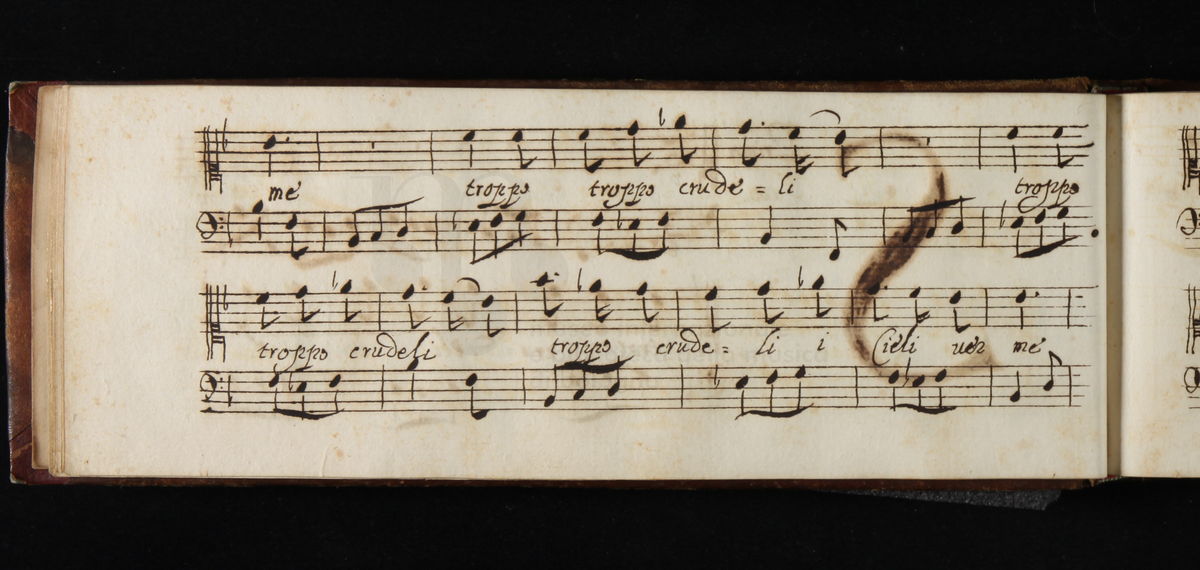 me troppo troppo crude = li troppo
troppo crudeli troppo crude = li i Cieli ver me